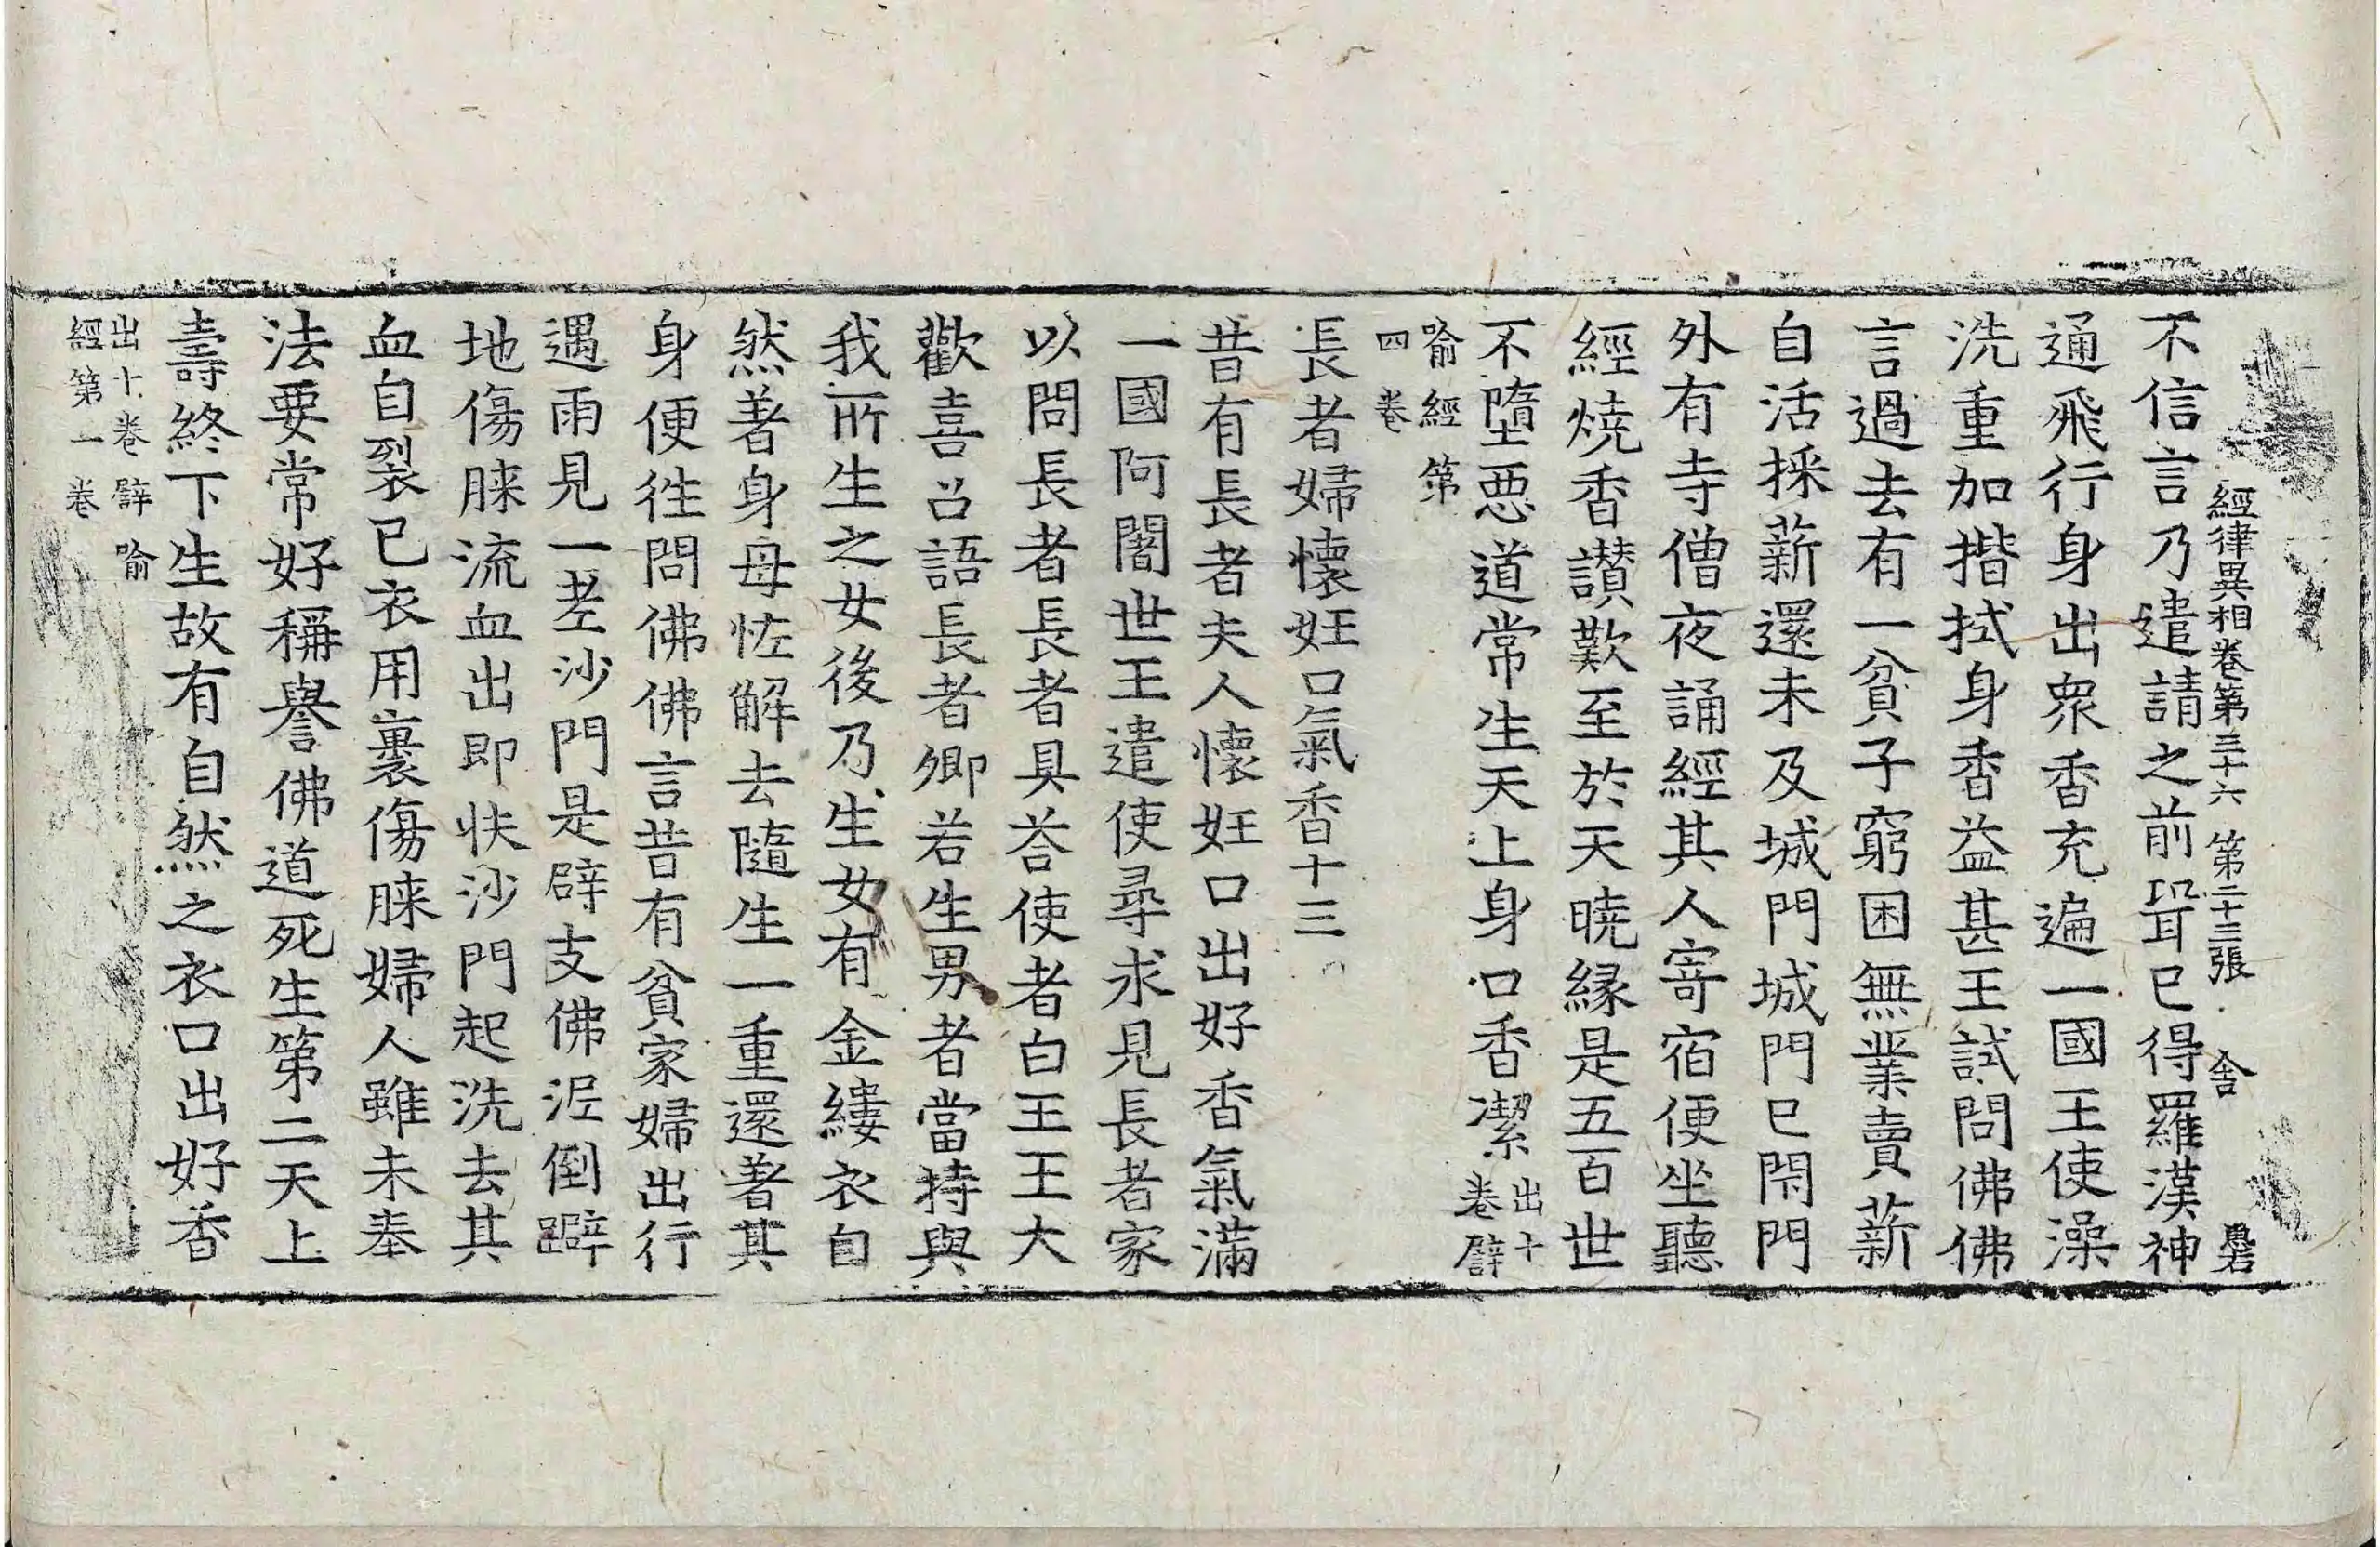 經律異相卷第三十六 第二十三張 舍
不信言乃遣請之前聟已得羅漢神
通飛行身出衆香充遍一國王使澡
洗重加揩拭身香益甚王試問佛佛
言過去有一貧子窮困無業賣薪
自活採薪還未及城門城門已閇門
外有寺僧夜誦經其人寄宿便坐聽
經燒香讃歎至於天曉縁是五百世
不墮惡道常生天上身口香潔出十卷譬
喻經第四卷
長者婦懷妊口氣香十三
昔有長者夫人懷妊口出好香氣滿
一國阿闍世王遣使尋求見長者家
以問長者長者具荅使者白王王大
歡喜召語長者卿若生男者當持與
我所生之女後乃生女有金縷衣自
然著身母怪解去隨生一重還著其
身便徃問佛佛言昔有貧家婦出行
遇雨見一老沙門是辟支佛泥倒躃
地傷脨流血出即扶沙門起洗去其
血自裂已衣用裹傷脨婦人雖未奉
法要常好稱譽佛道死生第二天上
壽終下生故有自然之衣口出好香
出十卷譬喻
經第一卷